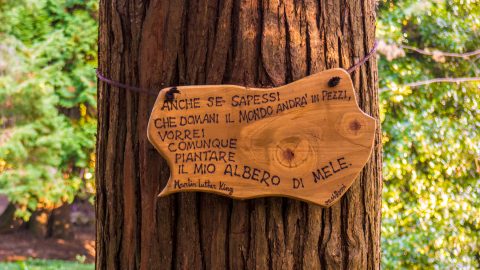 ANCHE SE SAPESSI
CHE DOMANI IL MONDO ANDRÀ IN PEZZI,
VORREI
COMUNQUE
PIANTARE
IL MIO ALBERO DI MELE.
Martin Luther King